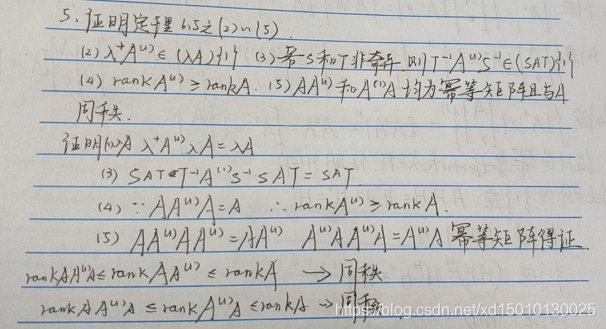 5. 证明定理6.5之(2)~(5).
(2) λ⁺A⁽¹⁾∈(λA){1} (3) 若S和T非奇异, 则T⁻¹A⁽¹⁾S⁻¹∈(SAT){1}
(4) rankA⁽¹⁾≥rankA. (5) AA⁽¹⁾和A⁽¹⁾A均为幂等矩阵且与A
同秩.
证明(2) λA λ⁺A⁽¹⁾λA=λA
(3) SAT T⁻¹A⁽¹⁾S⁻¹SAT=SAT
(4) ∵ AA⁽¹⁾A=A ∴ rankA⁽¹⁾≥rankA.
(5) AA⁽¹⁾AA⁽¹⁾=AA⁽¹⁾ A⁽¹⁾AA⁽¹⁾A=A⁽¹⁾A 幂等矩阵得证.
rankAA⁽¹⁾A≤rankAA⁽¹⁾≤rankA → 同秩
rankAA⁽¹⁾A≤rankA⁽¹⁾A≤rankA → 同秩
https://blog.csdn.net/xd15010130025